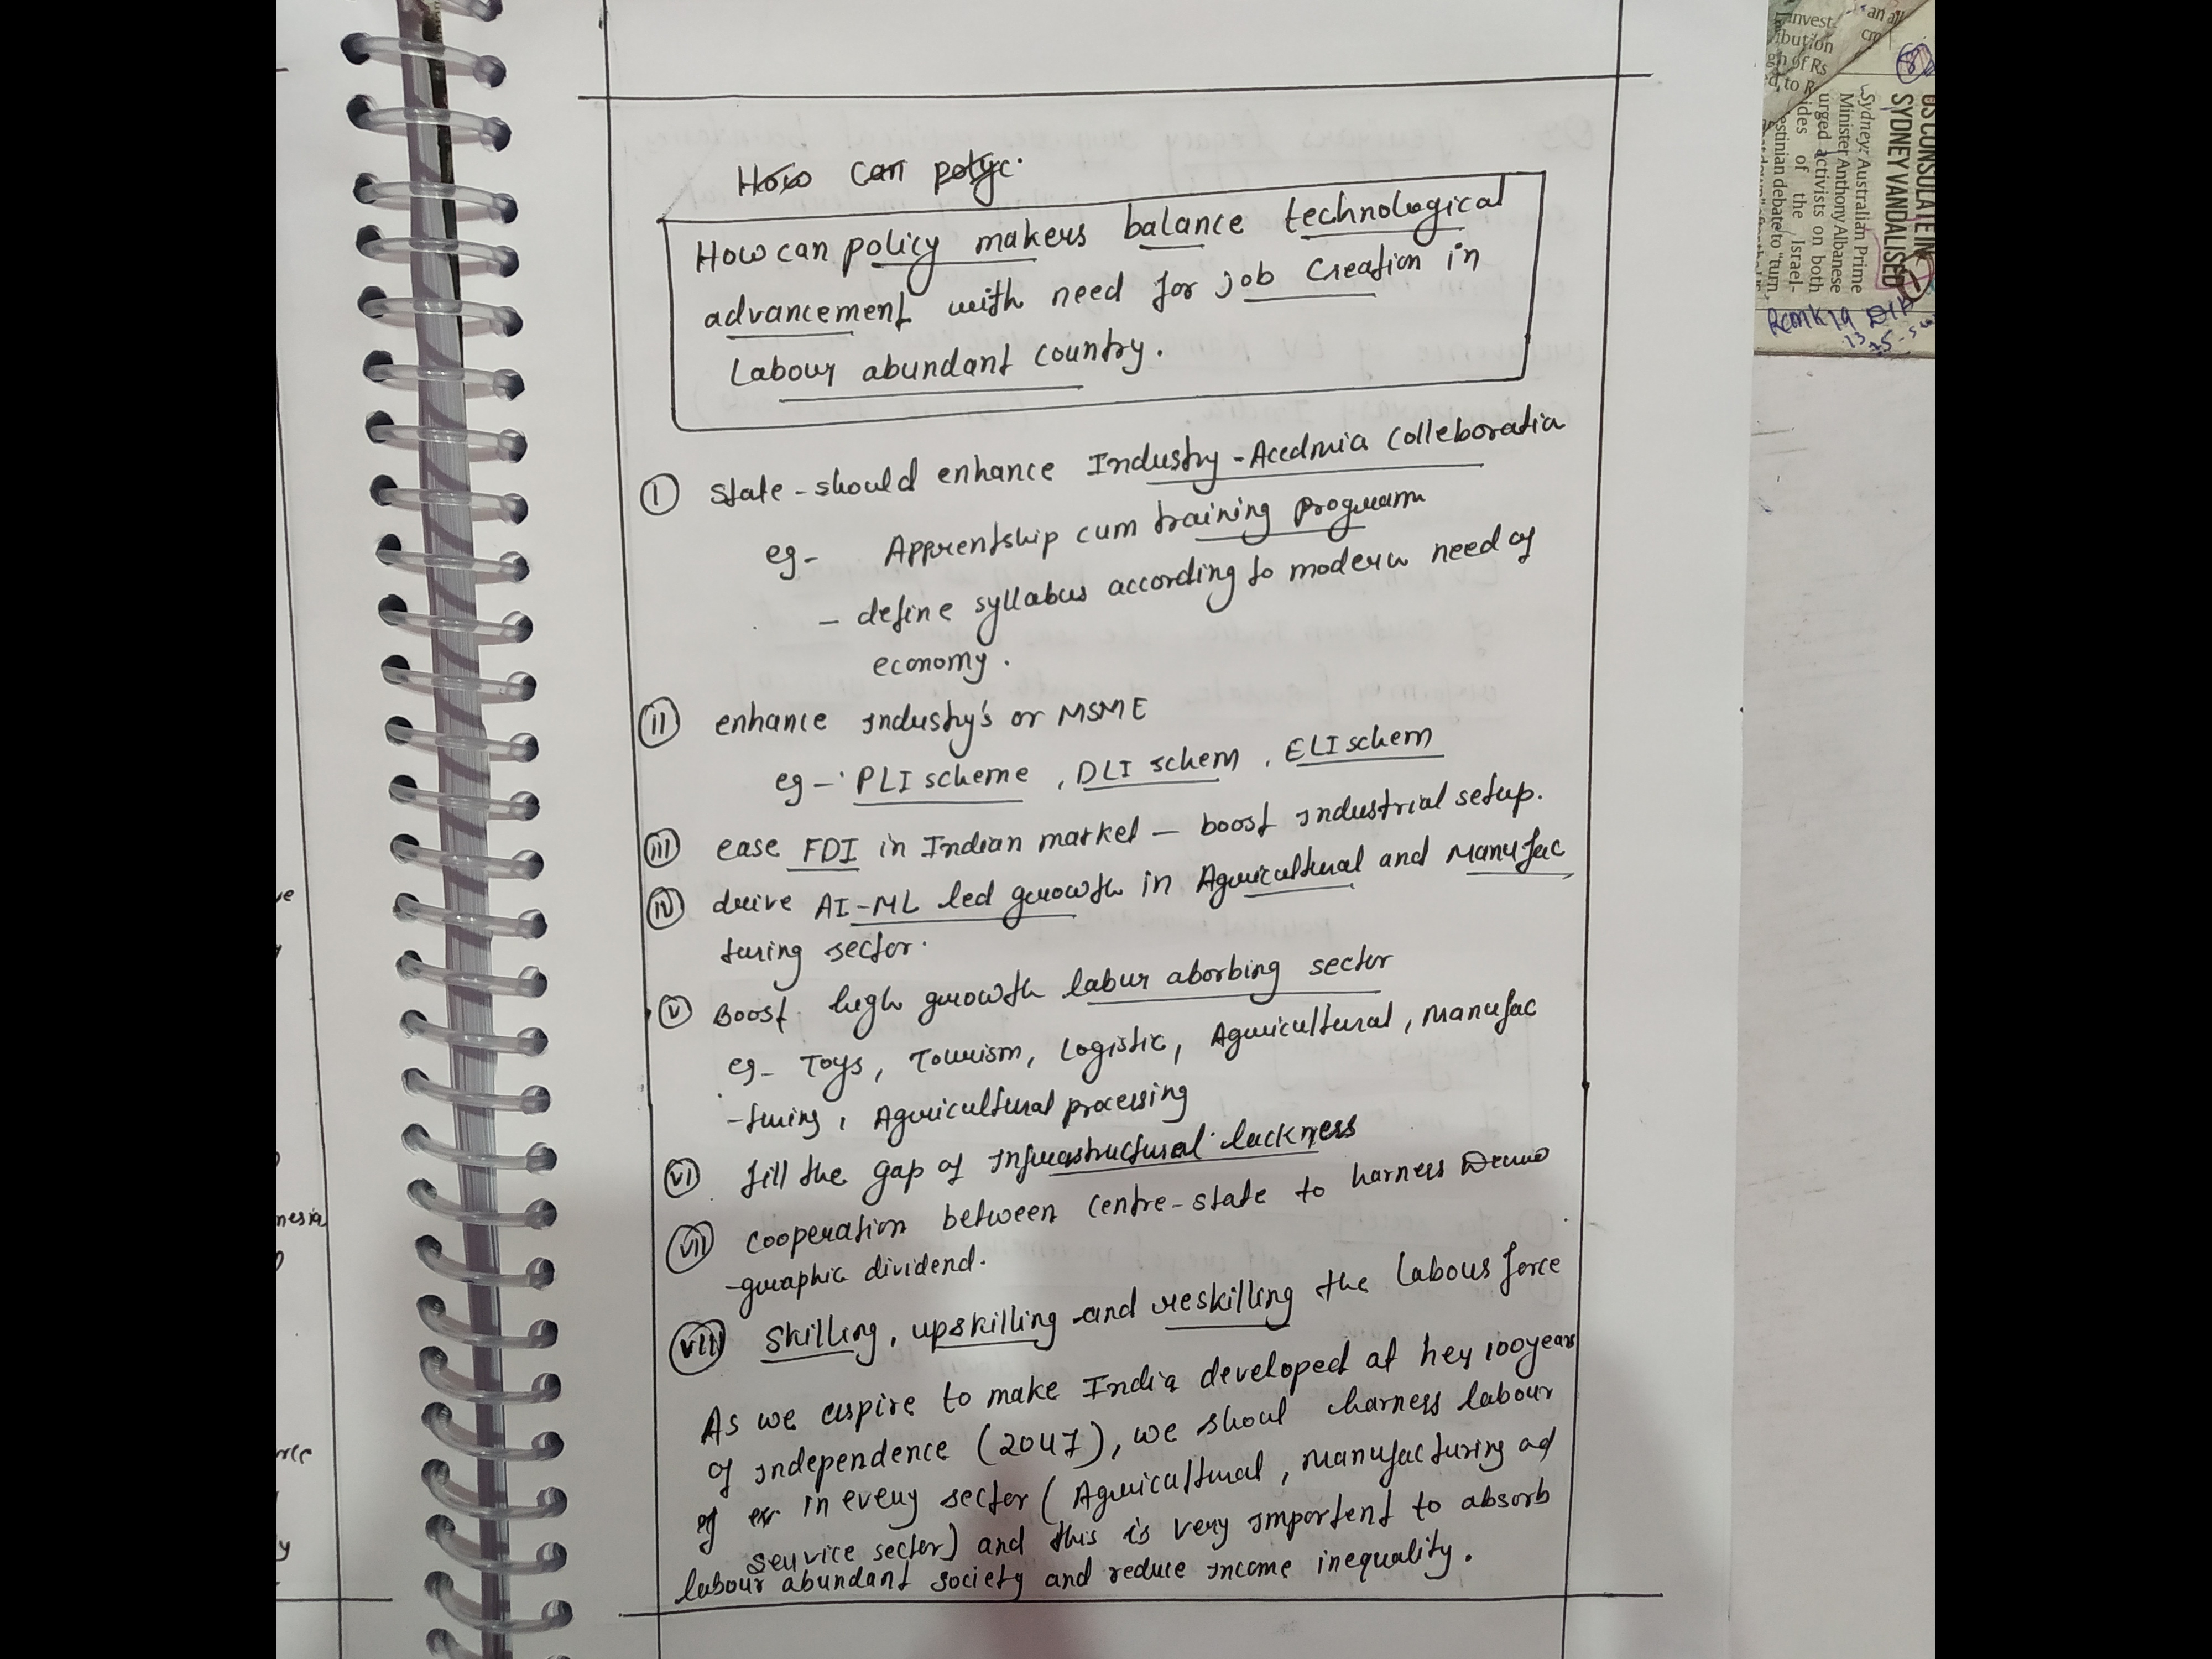 How can polyc.
How can policy makers balance technological
advancement with need for job Creation in
Labour abundant country.
(I) State - should enhance Industry - Acedmia Colleboratia
eg- Apprentship cum training Program
- define syllabus according to modern need of
economy.
(II) enhance Industry's or MSME
eg - PLI scheme, DLI schem, ELI schem
(III) ease FDI in Indian market - boost Industrial setup.
(IV) drive AI-ML led growth in Agricultural and Manufac
turing sector.
(V) Boost high growth labur aborbing sector
eg- Toys, Tourism, Logistic, Agricultural, Manufac
-turing, Agricultural processing
(VI) fill the gap of Infrastructural lackness
(VII) cooperation between Centre-state to harness Demo
-graphic dividend.
(VIII) Skilling, upskilling and reskilling the Labour force
As we aspire to make India developed at hey 100years
of Independence (2047), we shoul harness labour
of in every sector (Agricultural, Manufacturing ad
service sector) and this is very Importent to absorb
labour abundant society and reduce Income inequality.
Invest-
ibution
gn of Rs
d, to R
an all
cm
US CONSULATE IN
SYDNEY VANDALISED
Sydney: Australian Prime
Minister Anthony Albanese
urged activists on both
ides of the Israel-
estinian debate to "turn
nesia
y